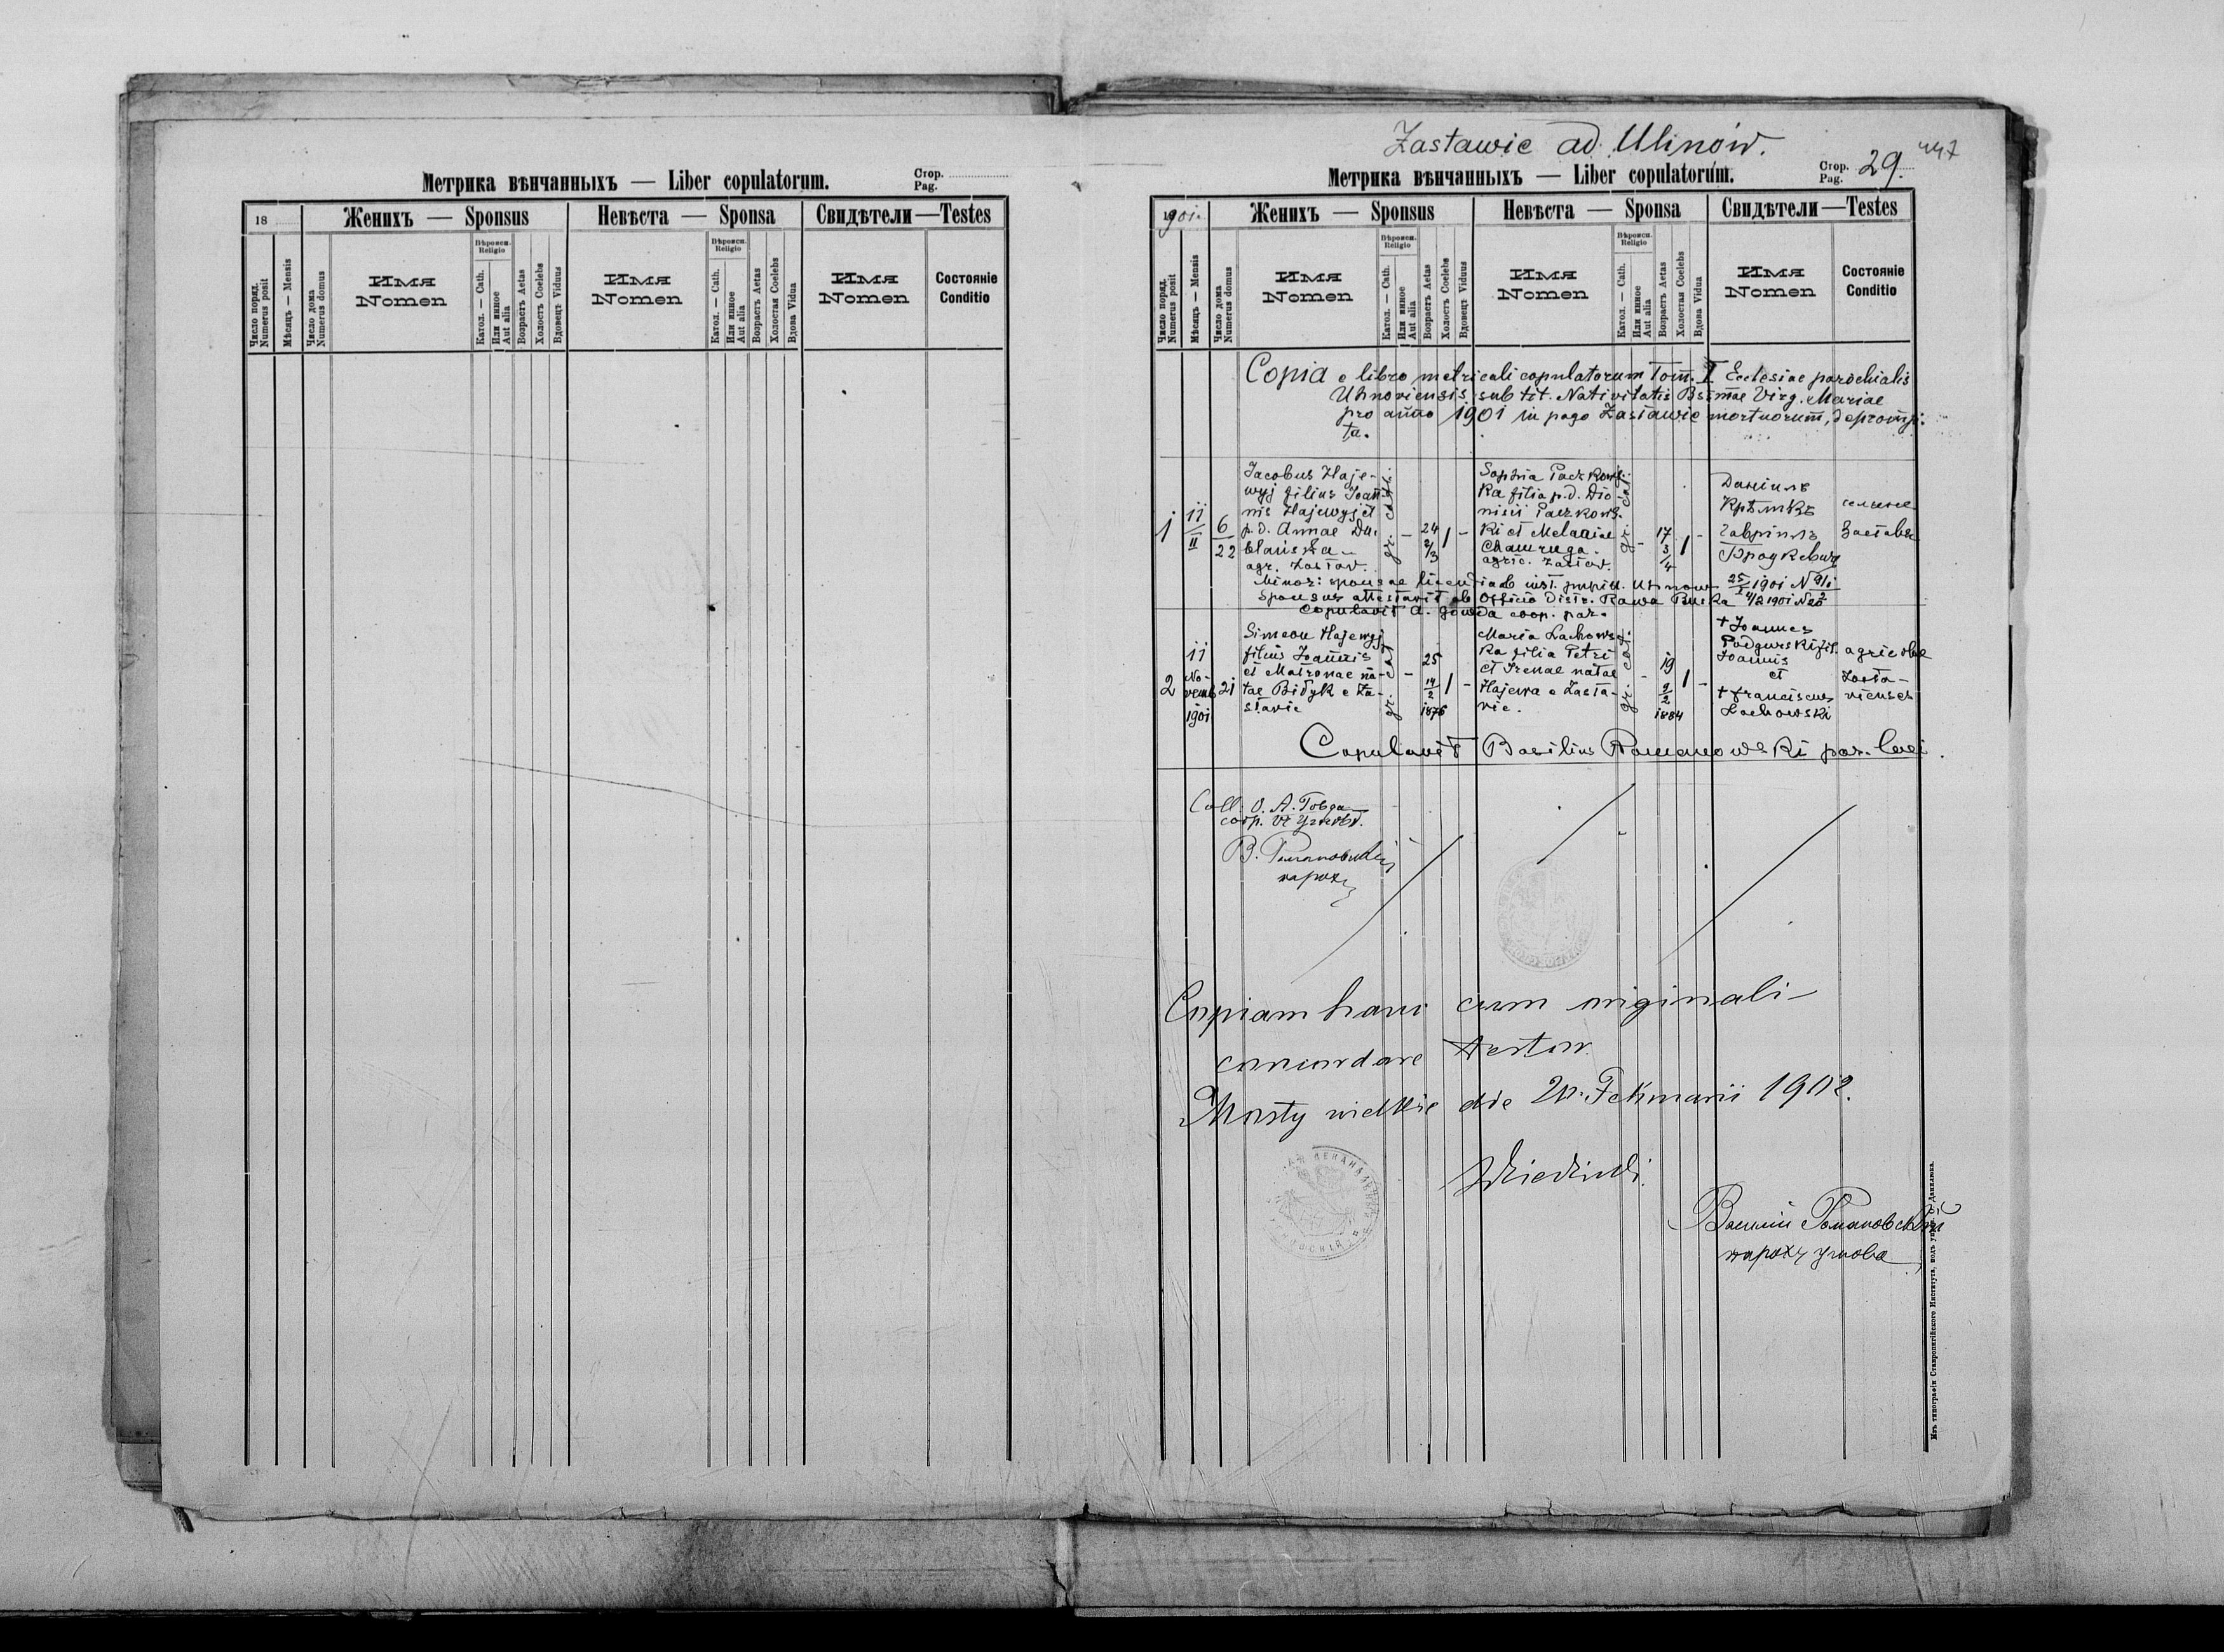 Метрика вѣнчанныхъ — Liber copulatorum.
Стор.
Pag.
18
Женихъ — Sponsus
Невѣста — Sponsa
Свидѣтели—Testes
Число поряд.
Numerus posit
Мѣсяцъ — Mensis
Число дома
Numerus domus
Имя
Nomen
Вѣроисп.
Religio
Катол. — Cath.
Или инное
Aut alia
Возрастъ Aetas
Холостъ Coelebs
Вдовецъ Viduus
Имя
Nomen
Вѣроисп.
Religio
Катол. — Cath.
Или инное
Aut alia
Возрастъ Aetas
Холостая Coelebs
Вдова Vidua
Имя
Nomen
Состояніе
Conditio
Zastawie ad. Uhnów.
447
Метрика вѣнчанныхъ — Liber copulatorum.
Стор.
Pag.
29.
1901.
Женихъ — Sponsus
Невѣста — Sponsa
Свидѣтели—Testes
Число поряд.
Numerus posit
Мѣсяцъ — Mensis
Число дома
Numerus domus
Имя
Nomen
Вѣроисп.
Religio
Катол. — Cath.
Или инное
Aut alia
Возрастъ Aetas
Холостъ Coelebs
Вдовецъ Viduus
Имя
Nomen
Вѣроисп.
Religio
Катол. — Cath.
Или инное
Aut alia
Возрастъ Aetas
Холостая Coelebs
Вдова Vidua
Имя
Nomen
Состояніе
Conditio
Copia e libro metricali copulatorum Tom. I Ecclesiae parochialis
Uhnoviensis sub tit. Nativitatis Bsmae Virg. Mariae
pro anno 1901 in pago Zastawie mortuorum, deprompta.
ta.
1
11
II
6
22
Jacobus Haje-
wyj filius Joan-
nis Hajewyj et
p. d. Annae Du-
agr. Zastav.
gr. cat.
24
2/3
1
Sophia Paczkows-
ka filia p. d. Dio-
nisii Paczkows-
ki et Melaniae
agric. Zastav.
gr. cat.
17
3/4
1
Даніилъ
Гавріилъ
Minor: sponsae licentia ab inst. pupill. Uhnow 25/I 1901 N
Sponsus attestavit ab Officio Distr. Rawa Ruska 4/2 1901 N
Copulavit A. Gowda coop. par.
2
11
No-
vemb
1901
21
Simeon Hajewyj
filius Joannis
et Matronae na-
tae Bidyk e Za-
stavie
gr. cat
25
14
2
1876
1
Maria Lachows-
ka filia Petri
et Irenae natae
Hajewa e Zasta-
vie.
gr. cat.
19
9
2
1884
1
+ Joannes
Podgurski fil.
Joannis
et
+ Franciscus
Lachowski
agricolae
Zasta-
vienses
Copulavit Basilius Romanowski par. loci.
Coll: О. А. Говда
В. Романовскій
парохъ
Copiam hanc cum originali
concordare testor.
Mosty wielkie die 20. Februarii 1902.
Василій Романовскій
парохъ Угнова
Изъ типографіи Ставропигійского Института, подъ управ. О. Данилюка.